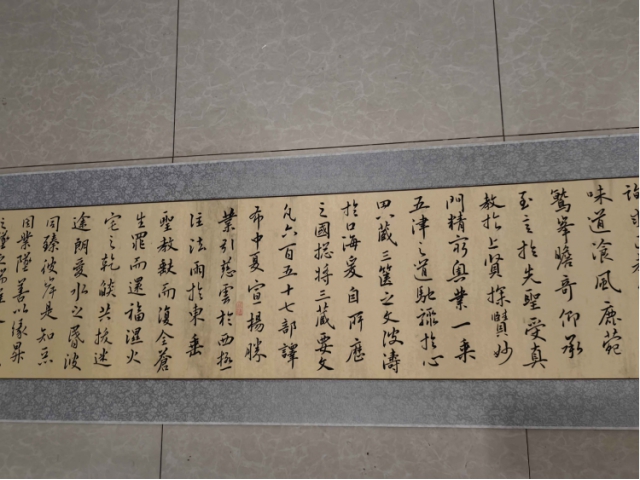 味道飡風鹿菀
鷲峯瞻奇仰承
至言於先聖受真
教於上賢探賾妙
門精窮奧業一乘
五律之道馳驟於心
田八藏三篋之文波濤
於口海爰自所歷
之國揔將三藏要文
凡六百五十七部譯
布中夏宣揚勝
業引慈雲於西極
注法雨於東垂
聖教缺而復全蒼
生罪而還福濕火
宅之乾燄共拔迷
途朗愛水之昏波
同臻彼岸是知惡
因業墜善以緣昇